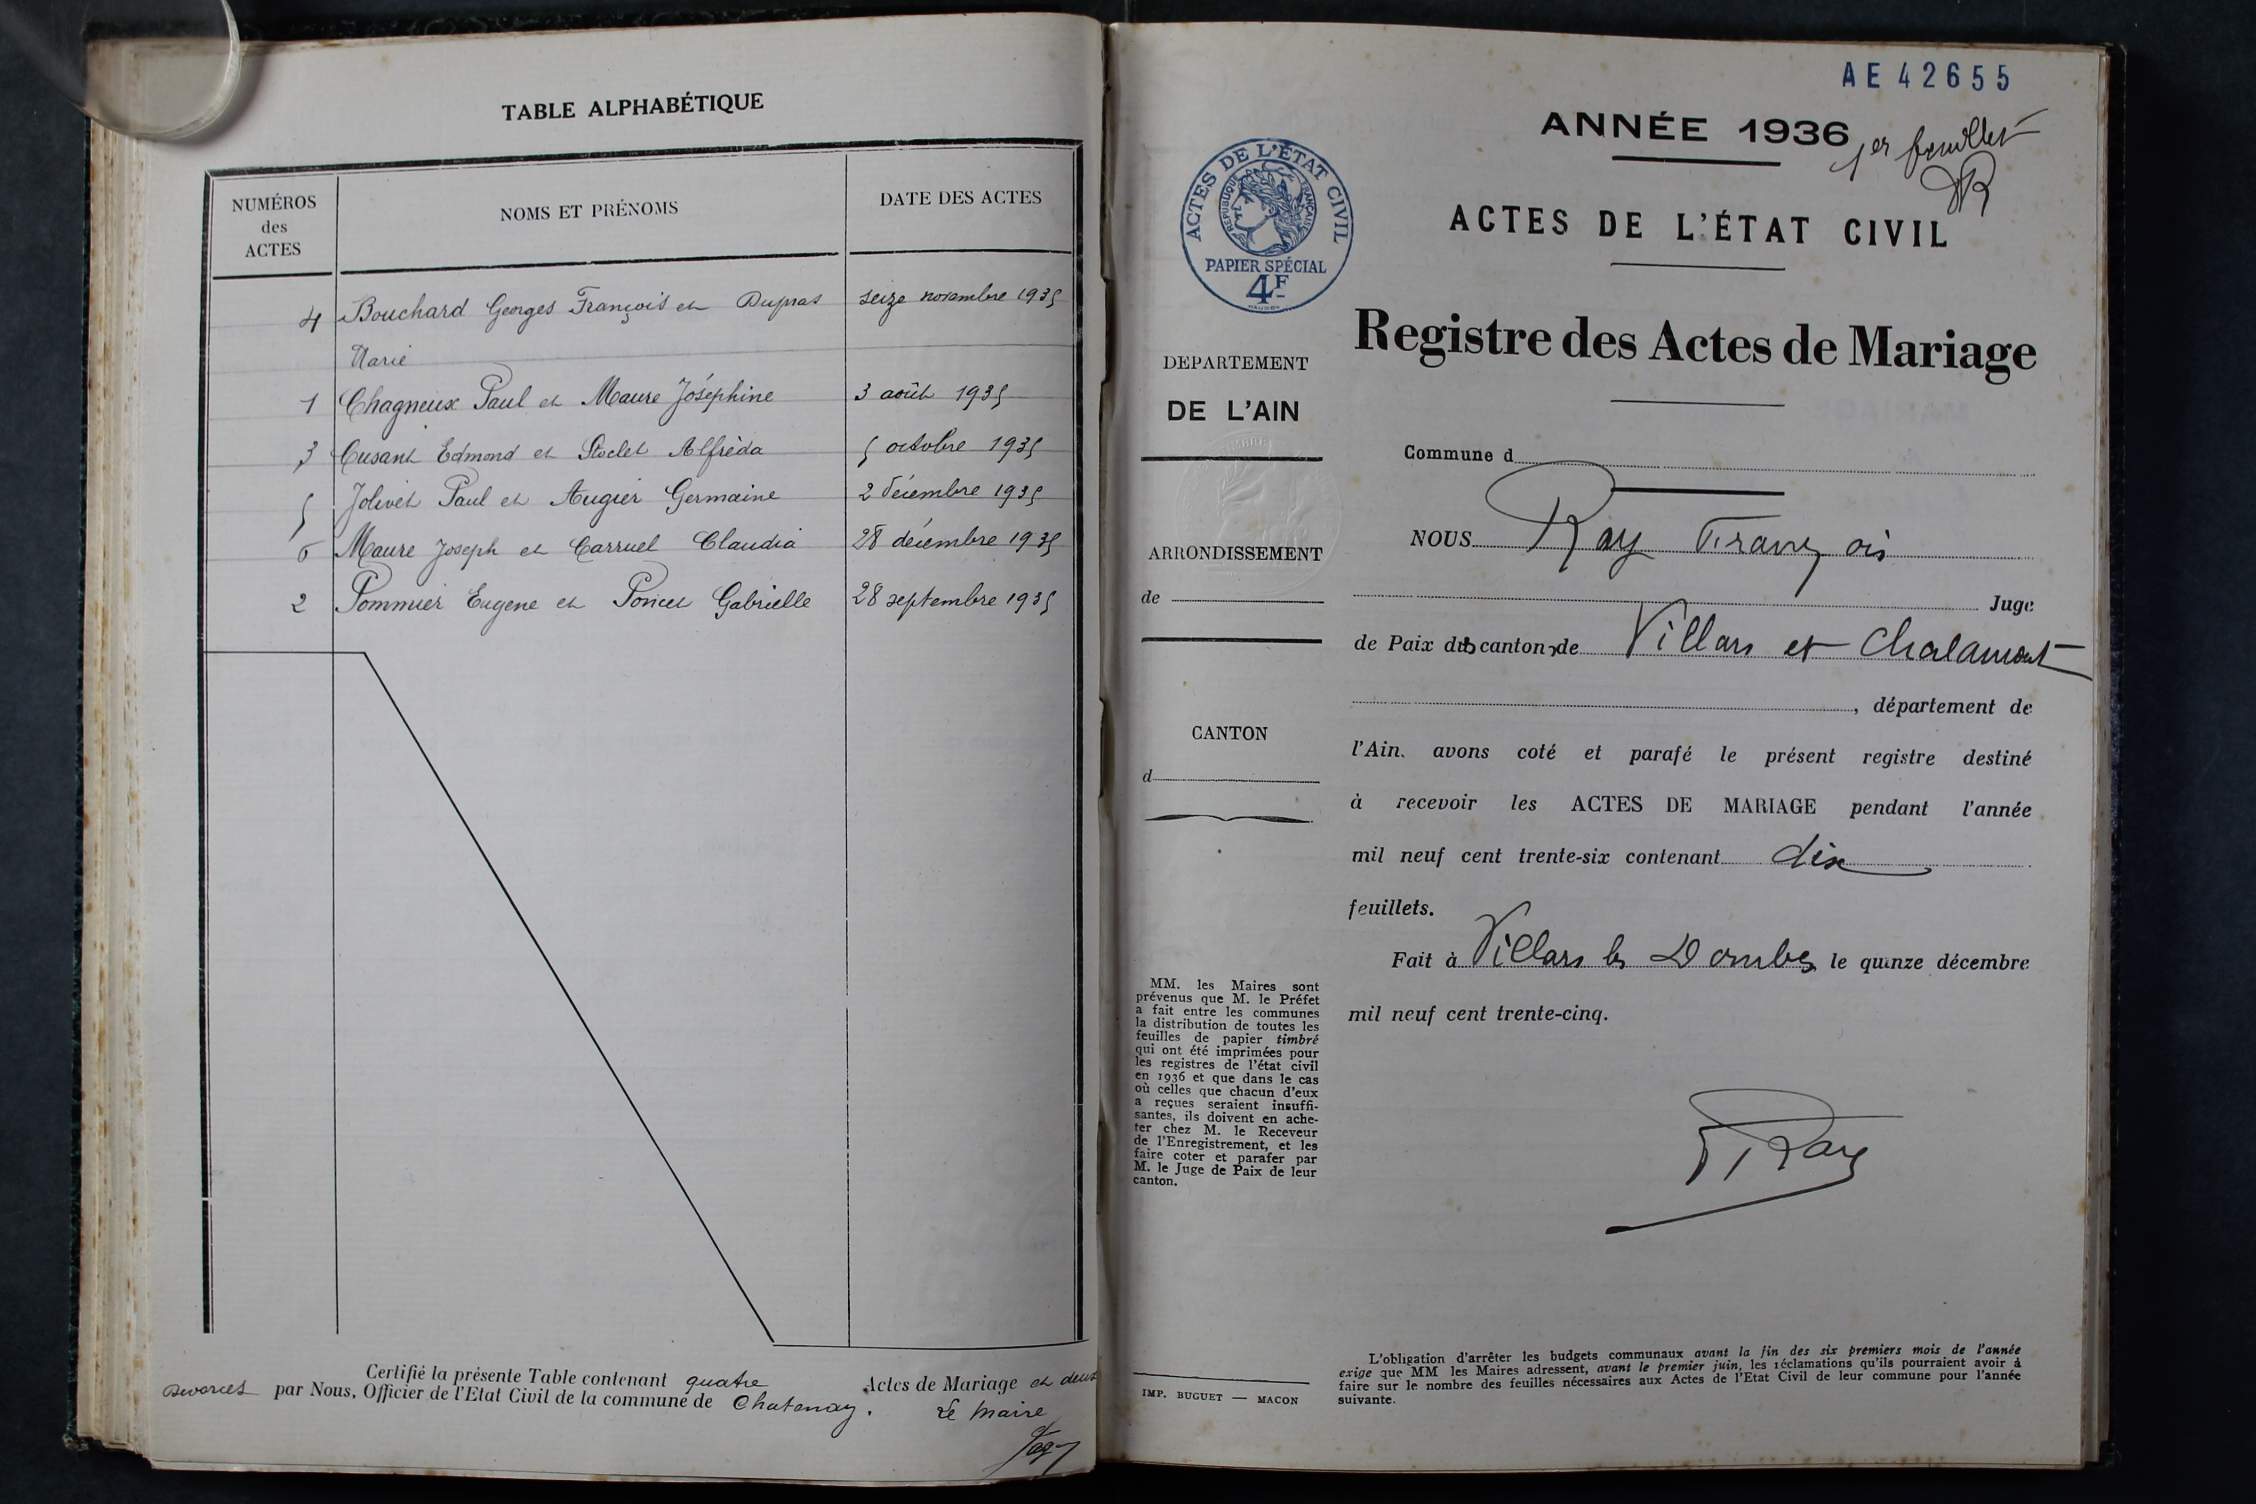 TABLE ALPHABÉTIQUE
NUMÉROS
des
ACTES
NOMS ET PRÉNOMS
DATE DES ACTES
4 Bouchard Georges François et Dupras seize novembre 1935
Marie
1 Chagneux Paul et Maure Joséphine 3 août 1935
3 Cusant Edmond et Stoclet Alfréda 5 octobre 1935
5 Jolivet Paul et Augier Germaine 2 décembre 1935
6 Maure Joseph et Carruel Claudia 28 décembre 1935
2 Pommier Eugene et Poncet Gabrielle 28 septembre 1935
Certifié la présente Table contenant quatre Actes de Mariage et deux
Divorces par Nous, Officier de l'Etat Civil de la commune de Chatenay.
Le Maire
AE 42655
ANNÉE 1936
1er feuillet
ACTES DE L'ÉTAT CIVIL
ACTES DE L'ÉTAT CIVIL
RÉPUBLIQUE FRANÇAISE
PAPIER SPÉCIAL
4F
Registre des Actes de Mariage
DEPARTEMENT
DE L'AIN
ARRONDISSEMENT
de
CANTON
d
Commune d
NOUS Ray François
Juge
de Paix des cantons de Villars et Chalamont
, département de
l'Ain. avons coté et parafé le présent registre destiné
à recevoir les ACTES DE MARIAGE pendant l'année
mil neuf cent trente-six contenant dix
feuillets.
Fait à Villars les Dombes le quinze décembre
mil neuf cent trente-cinq.
Ray
MM. les Maires sont
prévenus que M. le Préfet
a fait entre les communes
la distribution de toutes les
feuilles de papier timbré
qui ont été imprimées pour
les registres de l'état civil
en 1936 et que dans le cas
où celles que chacun d'eux
a reçues seraient insuffi-
santes, ils doivent en ache-
ter chez M. le Receveur
de l'Enregistrement, et les
faire coter et parafer par
M. le Juge de Paix de leur
canton.
IMP. BUGUET — MACON
L'obligation d'arrêter les budgets communaux avant la fin des six premiers mois de l'année
exige que MM les Maires adressent, avant le premier juin, les réclamations qu'ils pourraient avoir à
faire sur le nombre des feuilles nécessaires aux Actes de l'Etat Civil de leur commune pour l'année
suivante.